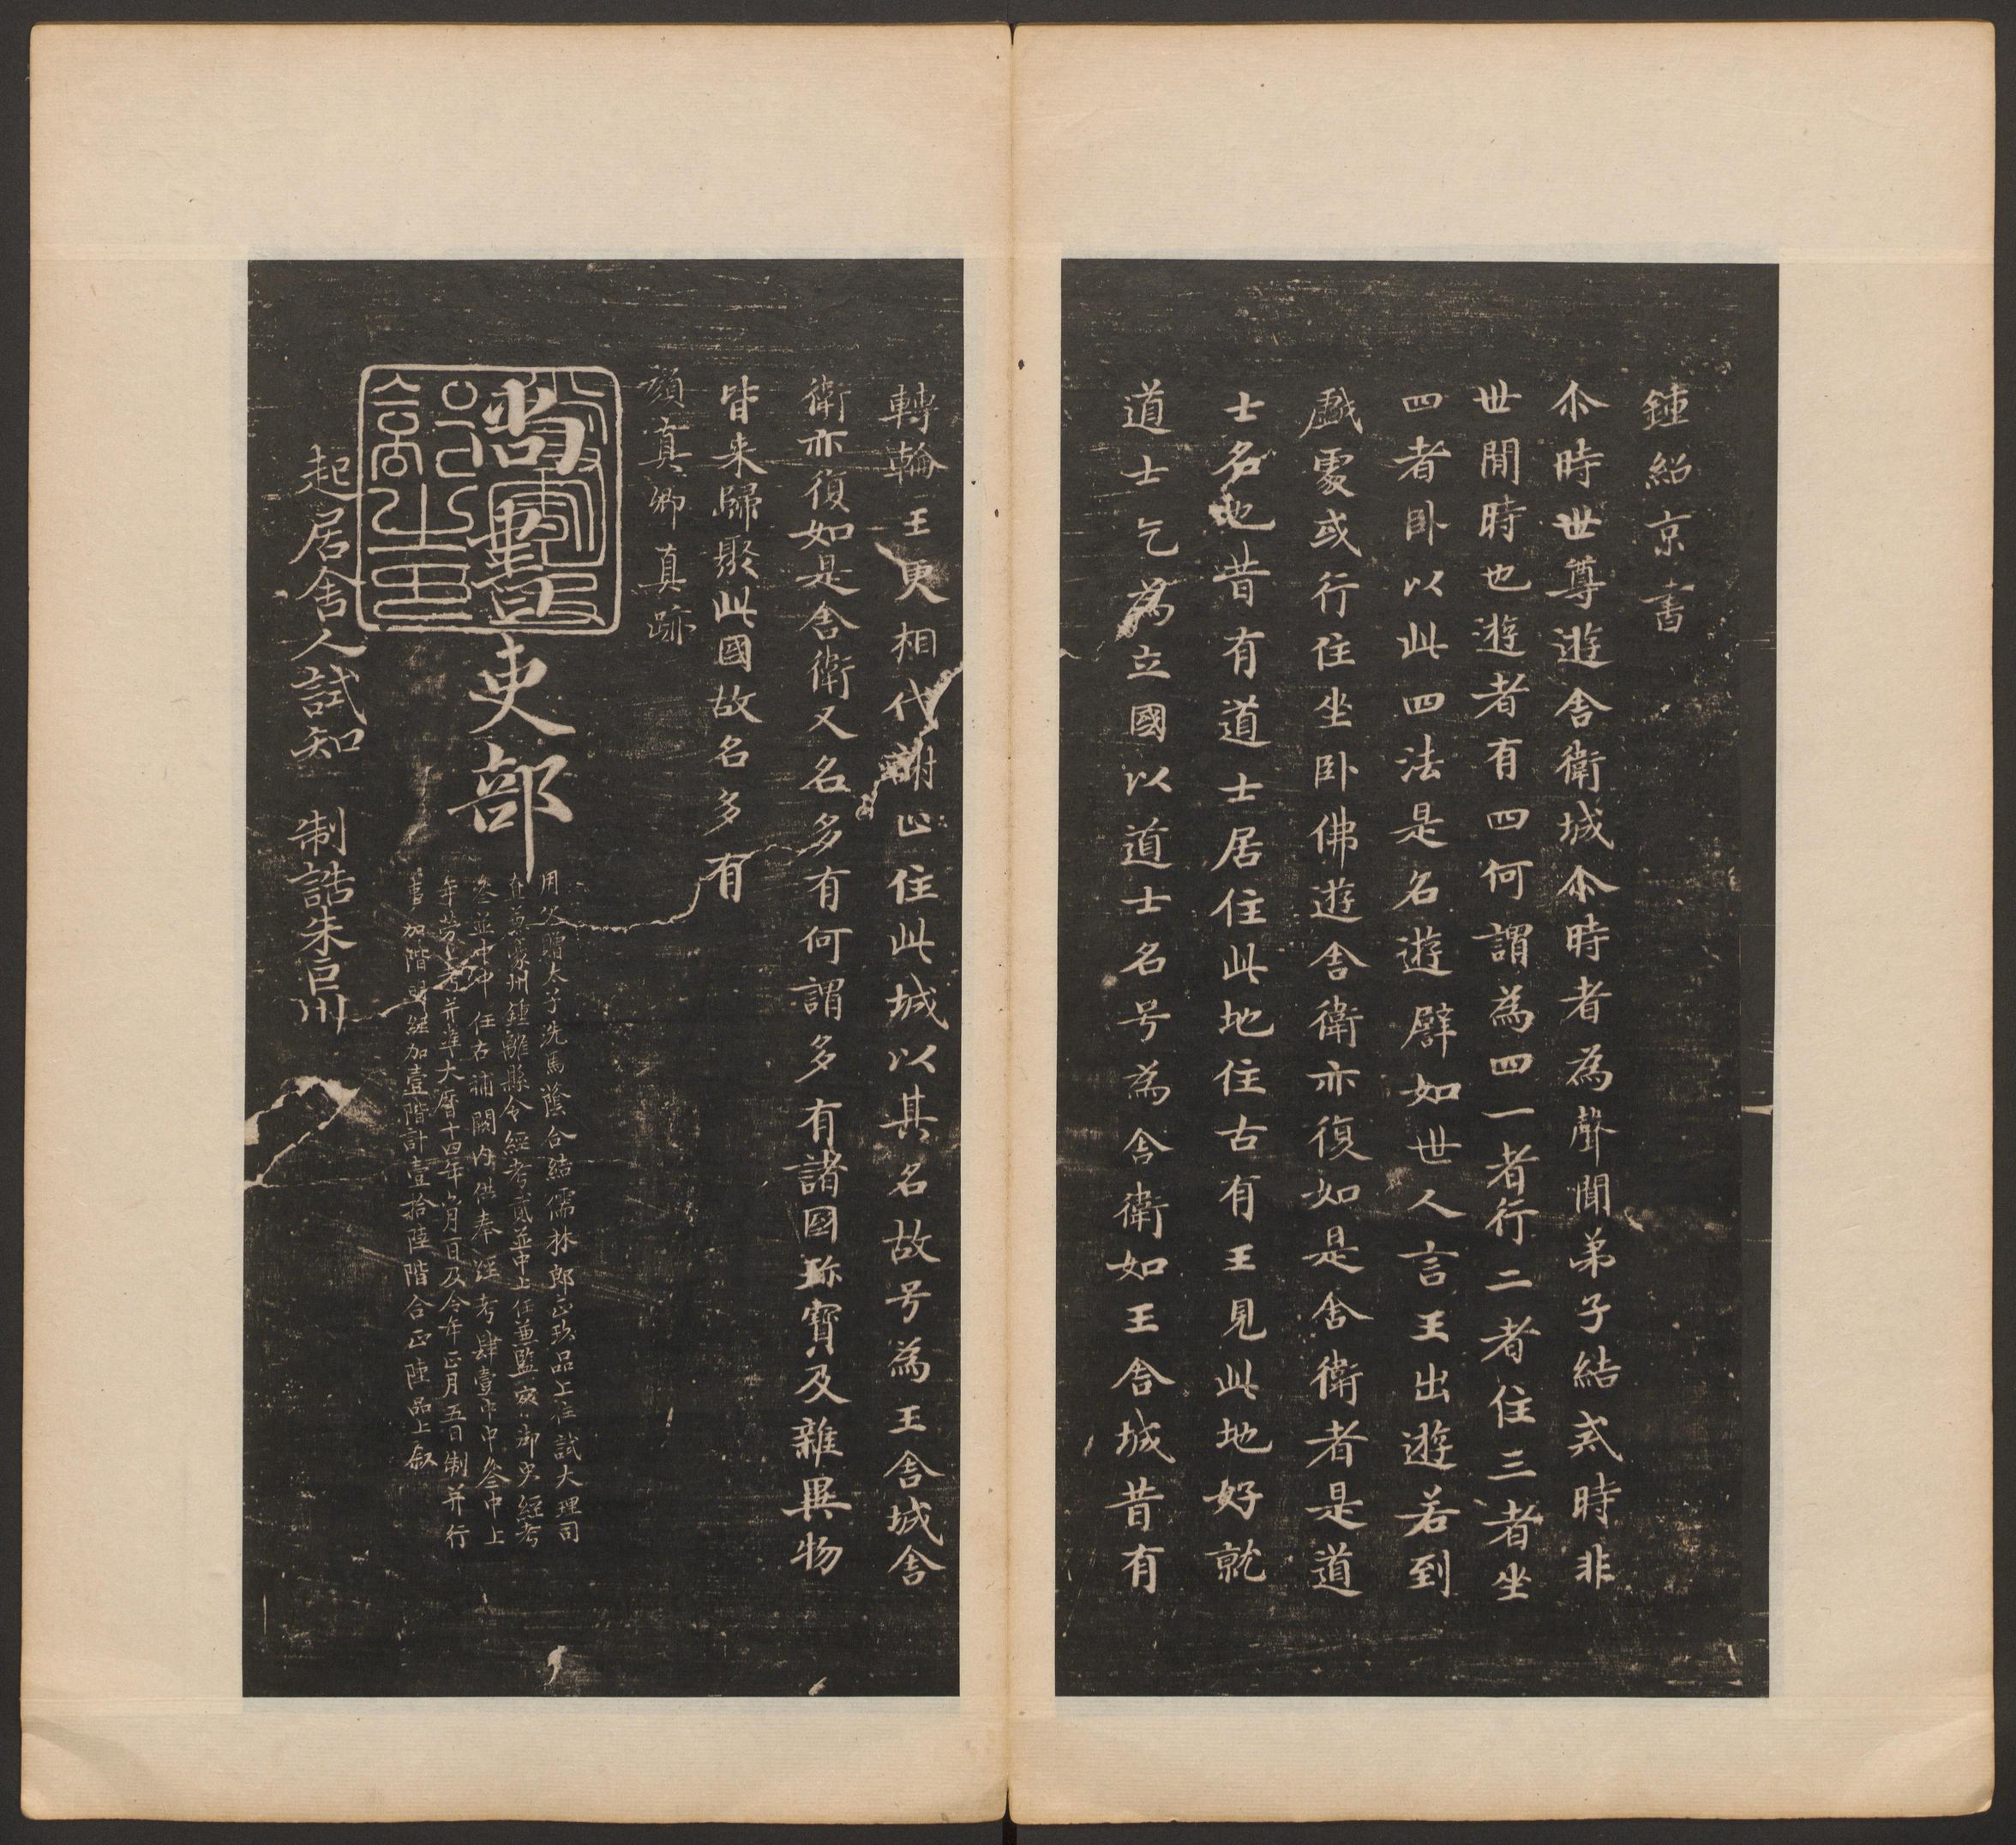 鍾紹京書
尒時世尊遊舍衛城尒時者為聲聞弟子結戒時非
世間時也遊者有四何謂為四一者行二者住三者坐
四者卧以此四法是名遊譬如世人言王出遊若到
戲處或行住坐卧佛遊舍衛亦復如是舍衛者是道
士名也昔有道士居住此地住古有王見此地好就
道士乞為立國以道士名号為舍衛如王舍城昔有
轉輪王更相代謝止住此城以其名故号為王舍城舍
衛亦復如是舍衛又名多有何謂多有諸國珎寶及雜異物
皆来歸聚此國故名多有
顏真卿真跡
尚書吏部
用父贈太子洗馬蔭合結儒林郎正玖品上任試大理司
直兼豪州鍾離縣令經考貳並中上任兼監察御史經考
叁並中中任右補闕內供奉經考肆壹中中叁中上
年勞考并準大曆十四年六月一日及今年正月五日制并行
事加階累經加壹階計壹拾陸階合正陸品上叙
起居舍人試知 制誥朱巨川